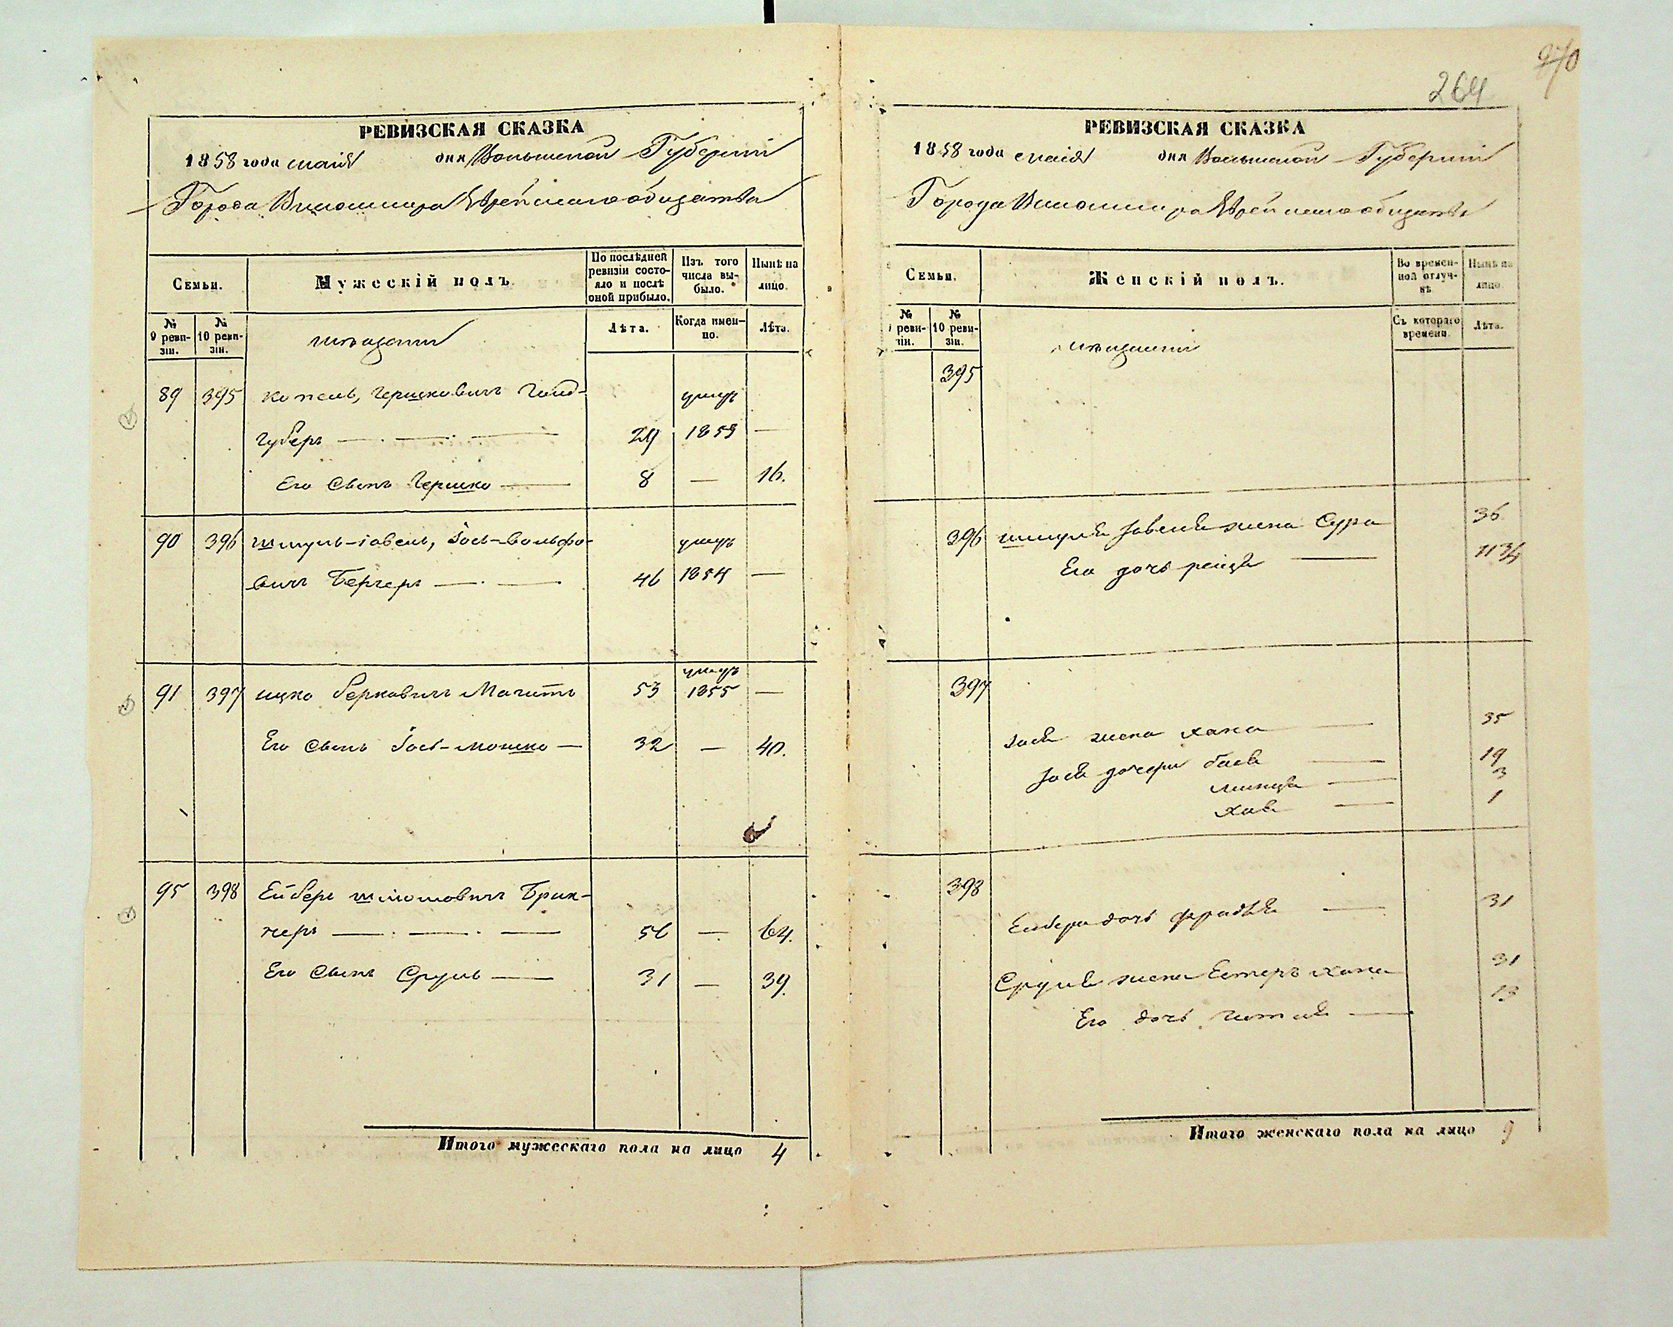 270
264
РЕВИЗСКАЯ СКАЗКА
1858 года маія дня Волынской Губерніи
Города Житомира Еврейскаго общества
Семьи.
Мужескій полъ.
По послѣдней ревизіи состояло и послѣ оной прибыло.
Изъ того числа выбыло.
Нынѣ на лицо.
№ 9 ревизіи.
№ 10 ревизіи.
мѣщани
Лѣта.
Когда именно.
Лѣта.
89 395 Гершковичъ Голд- умеръ
губеръ 29 1853 —
Его сынъ Гершко 8 — 16.
90 396 Шмуль- Іось-Вольфо- умеръ
вичъ Бергеръ 46 1854 —
умеръ
91 397 Ицко Берковичъ 53 1855 —
Его сынъ Іось-Мошко — 32 — 40.
95 398 Ейберъ Шліомовичъ Брик-
неръ 56 — 64.
Его сынъ Сруль 31 — 39.
Итого мужескаго пола на лицо 4
РЕВИЗСКАЯ СКАЗКА
1858 года маія дня Волынской Губерніи
Города Житомира Еврейскаго общества
Семьи.
Женскій полъ.
Во временной отлучкѣ.
Нынѣ на лицо
№ 9 ревизіи.
№ 10 ревизіи.
мѣщанки
Съ котораго времени.
Лѣта.
395
396 Шмуля жена Сура 36
Его дочь Рейзя 11 3/4
397
Іося жена Хана 35
Іося дочери Бася 19
3
Хая 1
398
Ейбера дочь Фрадля 31
Сруля жена Естеръ Хана 31
Его дочь Гитля 13
Итого женскаго пола на лицо 9